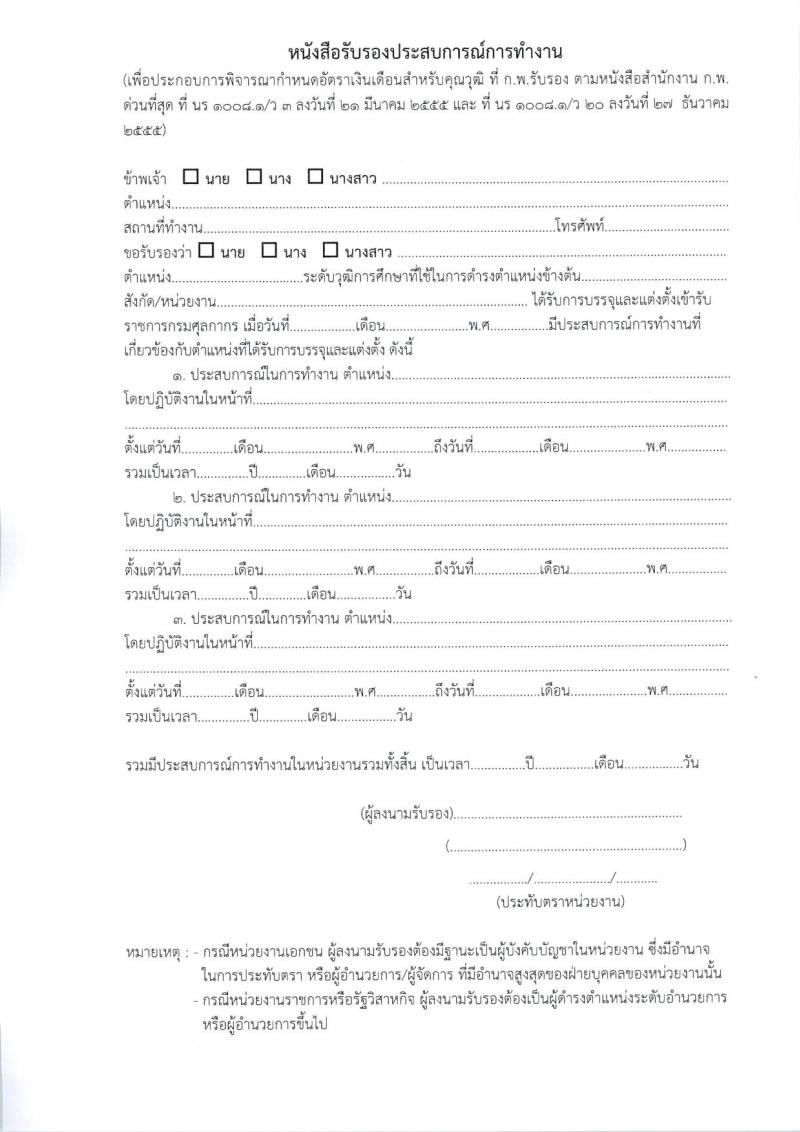 หนังสือรับรองประสบการณ์การทำงาน
(เพื่อประกอบการพิจารณากำหนดอัตราเงินเดือนสำหรับคุณวุฒิ ที่ ก.พ.รับรอง ตามหนังสือสำนักงาน ก.พ.
ด่วนที่สุด ที่ นร ๑๐๐๘.๑/ว ๓ ลงวันที่ ๒๑ มีนาคม ๒๕๕๕ และ ที่ นร ๑๐๐๘.๑/ว ๒๐ ลงวันที่ ๒๗ ธันวาคม
๒๕๕๕)
ข้าพเจ้า ☐ นาย ☐ นาง ☐ นางสาว ........................................
ตำแหน่ง........................................
สถานที่ทำงาน........................................โทรศัพท์....................
ขอรับรองว่า ☐ นาย ☐ นาง ☐ นางสาว ........................................
ตำแหน่ง....................ระดับวุฒิการศึกษาที่ใช้ในการดำรงตำแหน่งข้างต้น....................
สังกัด/หน่วยงาน........................................ ได้รับการบรรจุและแต่งตั้งเข้ารับ
ราชการกรมศุลกากร เมื่อวันที่..........เดือน...............พ.ศ...........มีประสบการณ์การทำงานที่
เกี่ยวข้องกับตำแหน่งที่ได้รับการบรรจุและแต่งตั้ง ดังนี้
๑. ประสบการณ์ในการทำงาน ตำแหน่ง........................................
โดยปฏิบัติงานในหน้าที่........................................
........................................
ตั้งแต่วันที่..........เดือน...............พ.ศ...........ถึงวันที่..........เดือน...............พ.ศ...........
รวมเป็นเวลา..........ปี..........เดือน..........วัน
๒. ประสบการณ์ในการทำงาน ตำแหน่ง........................................
โดยปฏิบัติงานในหน้าที่........................................
........................................
ตั้งแต่วันที่..........เดือน...............พ.ศ...........ถึงวันที่..........เดือน...............พ.ศ...........
รวมเป็นเวลา..........ปี..........เดือน..........วัน
๓. ประสบการณ์ในการทำงาน ตำแหน่ง........................................
โดยปฏิบัติงานในหน้าที่........................................
........................................
ตั้งแต่วันที่..........เดือน...............พ.ศ...........ถึงวันที่..........เดือน...............พ.ศ...........
รวมเป็นเวลา..........ปี..........เดือน..........วัน
รวมมีประสบการณ์การทำงานในหน่วยงานรวมทั้งสิ้น เป็นเวลา..........ปี..........เดือน..........วัน
(ผู้ลงนามรับรอง)........................................
(........................................)
............/................/..........
(ประทับตราหน่วยงาน)
หมายเหตุ : - กรณีหน่วยงานเอกชน ผู้ลงนามรับรองต้องมีฐานะเป็นผู้บังคับบัญชาในหน่วยงาน ซึ่งมีอำนาจ
ในการประทับตรา หรือผู้อำนวยการ/ผู้จัดการ ที่มีอำนาจสูงสุดของฝ่ายบุคคลของหน่วยงานนั้น
- กรณีหน่วยงานราชการหรือรัฐวิสาหกิจ ผู้ลงนามรับรองต้องเป็นผู้ดำรงตำแหน่งระดับอำนวยการ
หรือผู้อำนวยการขึ้นไป